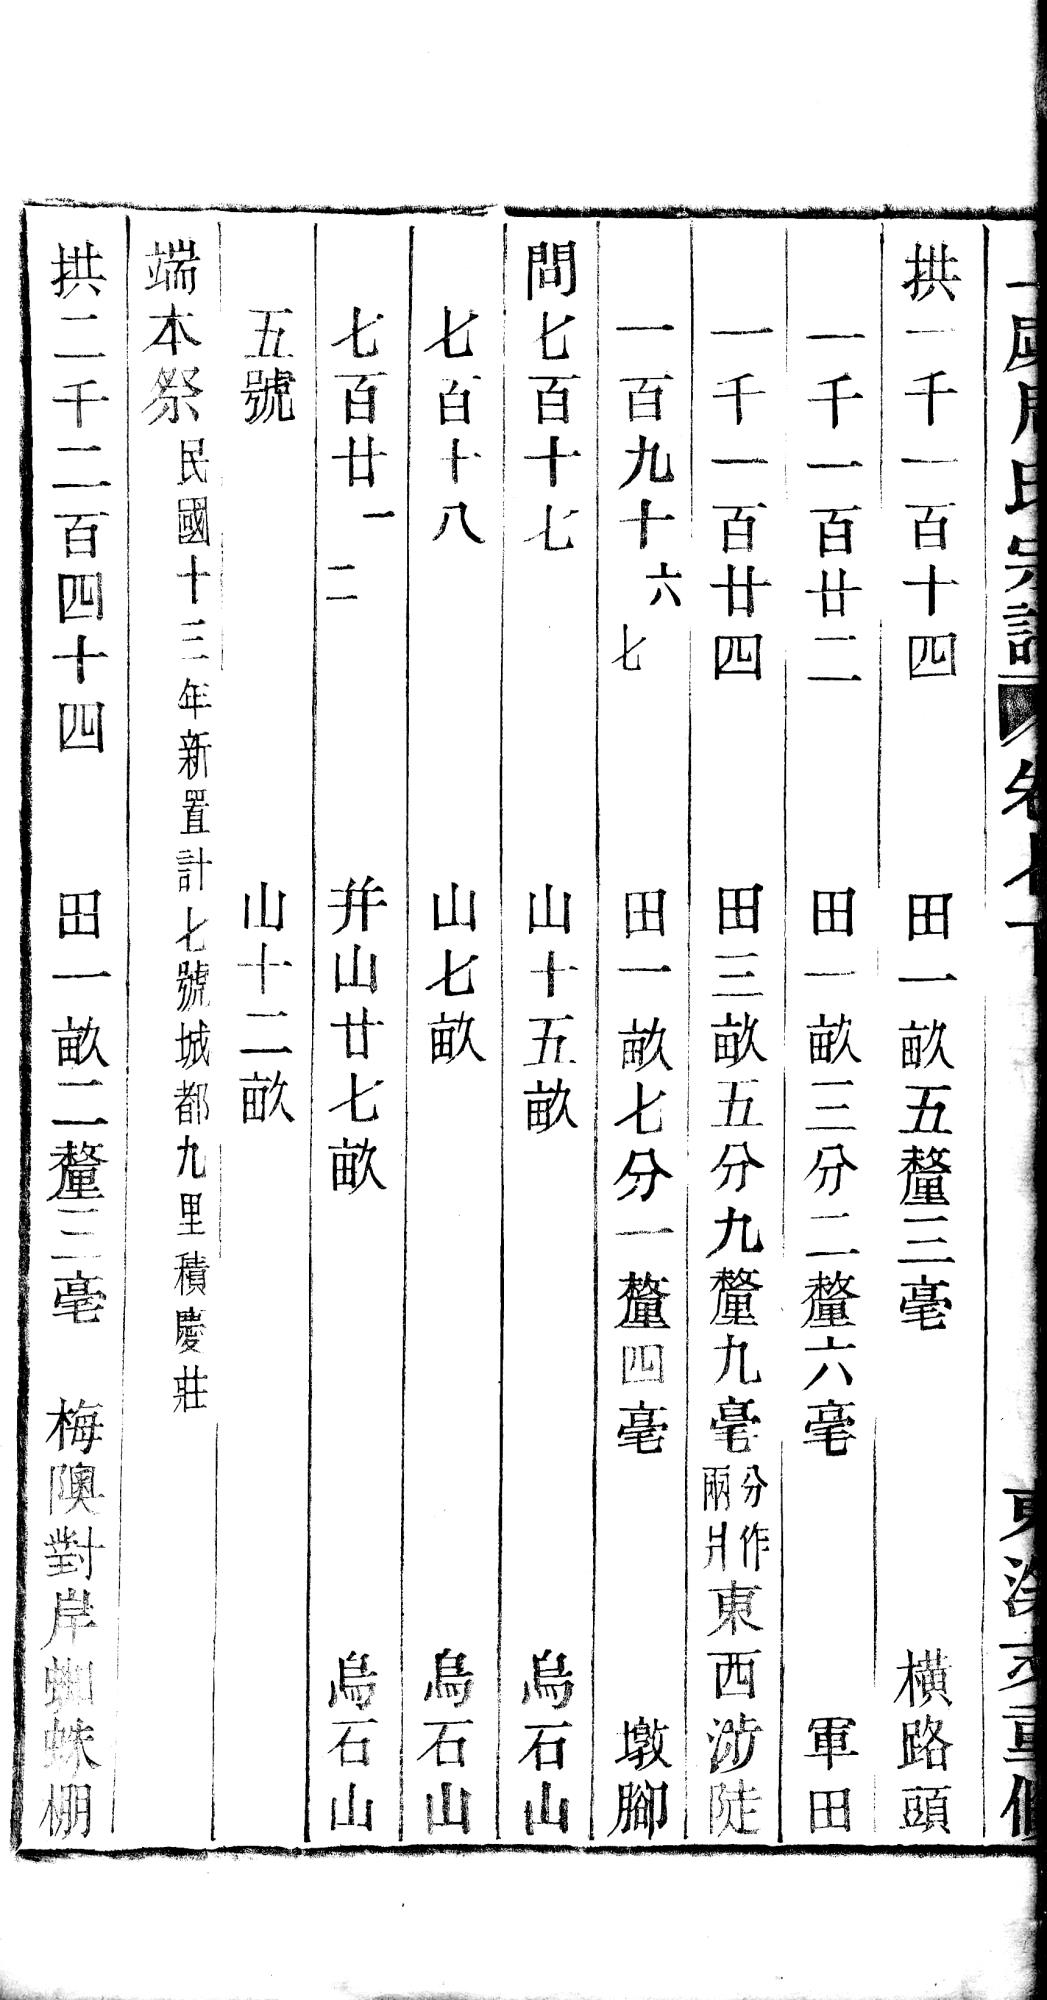 氏宗譜 卷
東 重修
拱一千一百十四 田一畝五釐三毫 橫路頭
一千一百廿二 田一畝三分二釐六毫 軍田
一千一百廿四 田三畝五分九釐九毫分作兩爿東西涉陡
一百九十六七 田一畝七分一釐四毫 墩腳
問七百十七 山十五畝 烏石山
七百十八 山七畝 烏石山
七百廿一二 幷山廿七畝 烏石山
五號 山十二畝
端本祭民國十三年新置計七號城都九里積慶莊
拱二千二百四十四 田一畝二釐三毫 梅隩對岸蜘蛛棚